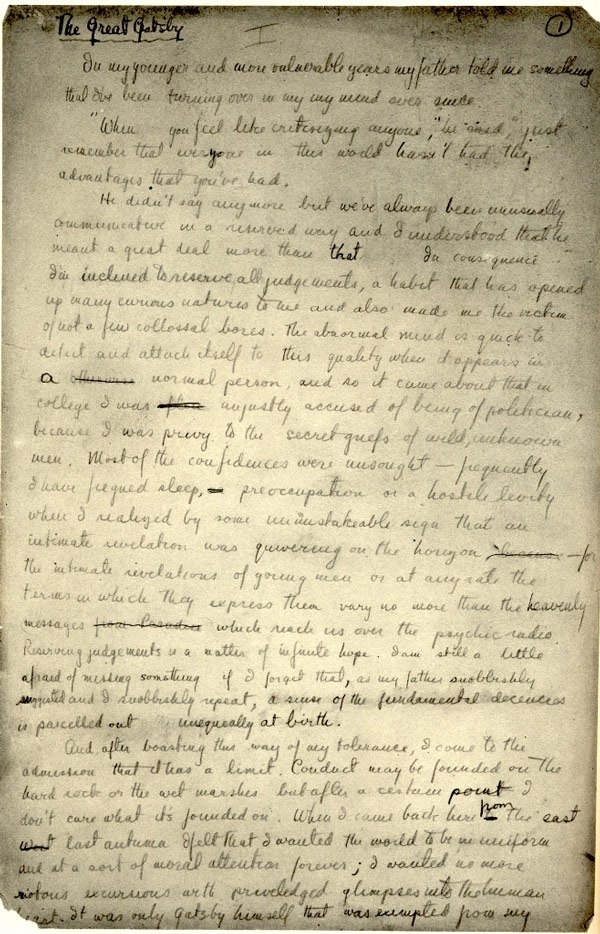 The Great Gatsby
I
1
In my younger and more vulnerable years my father told me something
that I've been turning over in my my mind ever since.
"When you feel like critisizing anyone," he said, "just
remember that everyone in this world hasn't had the
advantages that you've had.
He didn't say anymore but we've always been unusually
communicative in a reserved way and I understood that he
meant a great deal more than that In consequence
I'm inclined to reserve all judgements, a habit that has opened
up many curious natures to me and also made me the victim
of not a few collossal bores. The abnormal mind is quick to
detect and attach itself to this quality when it appears in
a otherwise normal person, and so it came about that in
college I was unjustly accused of being of politician,
because I was privy to the secret griefs of wild, unknown
men. Most of the confidences were unsought — frequently
I have fiegned sleep, preoccupation or a hostile levity
when I realized by some unmistakeable sign that an
intimate revelation was quivering on the horizon — for
the intimate revelations of young men or at any rate the
terms in which they express them vary no more than the heavenly
messages from which reach us over the psychic radio.
Reserving judgements is a matter of infinite hope. I am still a little
afraid of missing something if I forget that, as my father snobbishly
suggested and I snobbishly repeat, a sense of the fundamental decencies
is parcelled out unequally at birth.
And after boasting this way of my tolerance, I come to the
admission that it has a limit. Conduct may be founded on the
hard rock or the wet marshes but after a certain point I
don't care what it's founded on. When I came back here from the east
west last autumn I felt that I wanted the world to be in uniform
and at a sort of moral attention forever; I wanted no more
riotous excursions with priviledged glimpses into the human
heart. It was only Gatsby himself that was exempted from my